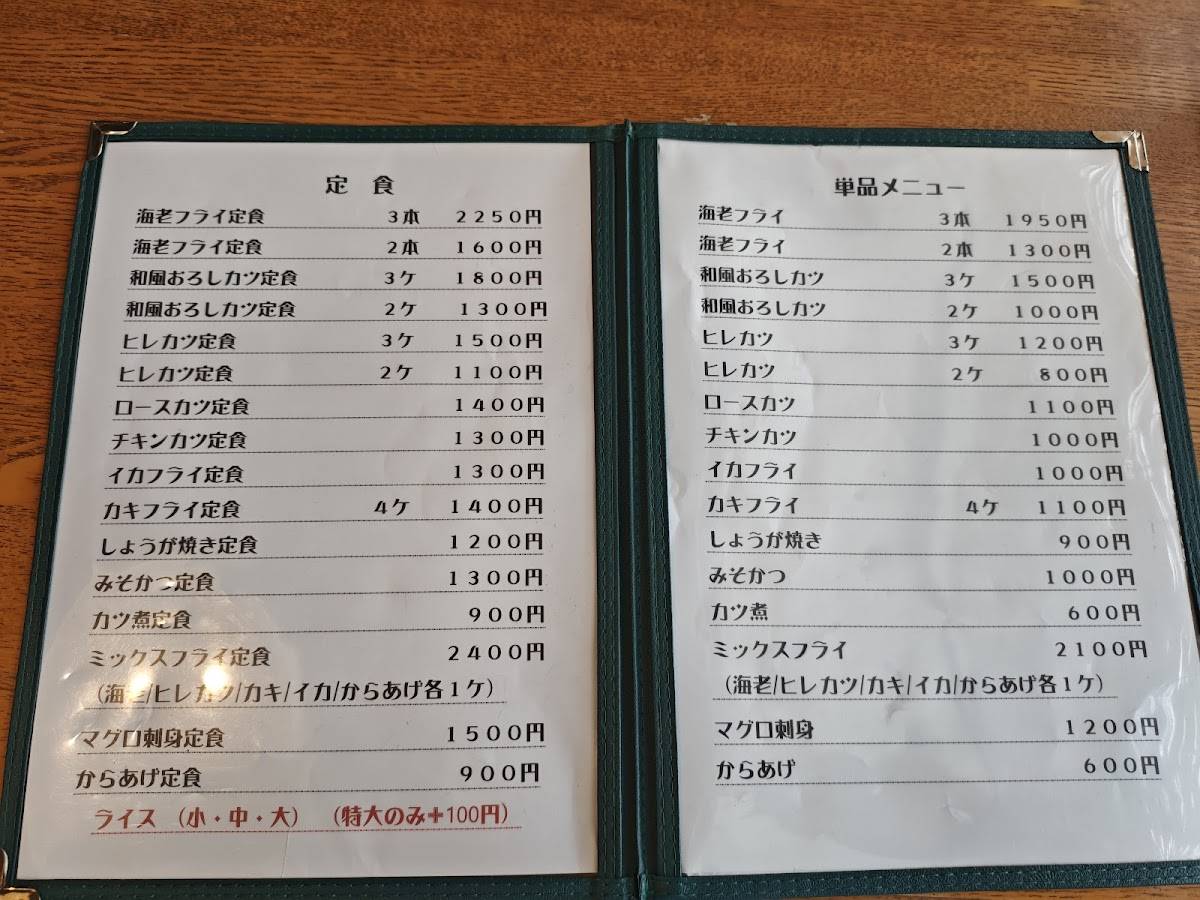 定 食
海老フライ定食 3本 2250円
海老フライ定食 2本 1600円
和風おろしカツ定食 3ケ 1800円
和風おろしカツ定食 2ケ 1300円
ヒレカツ定食 3ケ 1500円
ヒレカツ定食 2ケ 1100円
ロースカツ定食 1400円
チキンカツ定食 1300円
イカフライ定食 1300円
カキフライ定食 4ケ 1400円
しょうが焼き定食 1200円
みそかつ定食 1300円
カツ煮定食 900円
ミックスフライ定食 2400円
（海老/ヒレカツ/カキ/イカ/からあげ各1ケ）
マグロ刺身定食 1500円
からあげ定食 900円
ライス （小・中・大） （特大のみ+100円）
単品メニュー
海老フライ 3本 1950円
海老フライ 2本 1300円
和風おろしカツ 3ケ 1500円
和風おろしカツ 2ケ 1000円
ヒレカツ 3ケ 1200円
ヒレカツ 2ケ 800円
ロースカツ 1100円
チキンカツ 1000円
イカフライ 1000円
カキフライ 4ケ 1100円
しょうが焼き 900円
みそかつ 1000円
カツ煮 600円
ミックスフライ 2100円
（海老/ヒレカツ/カキ/イカ/からあげ各1ケ）
マグロ刺身 1200円
からあげ 600円